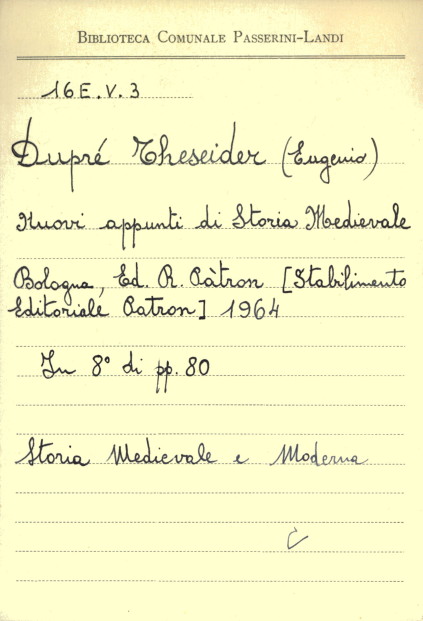 BIBLIOTECA COMUNALE PASSERINI-LANDI
16E.V.3
Dupré Theseider (Eugenio)
Nuovi appunti di Storia Medievale
Bologna, Ed. R. Pàtron [Stabilimento
Editoriale Patron] 1964
In 8° di pp. 80
Storia Medievale e Moderna